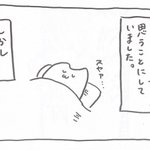 思うことにして
いました。
スヤァ…
しかし